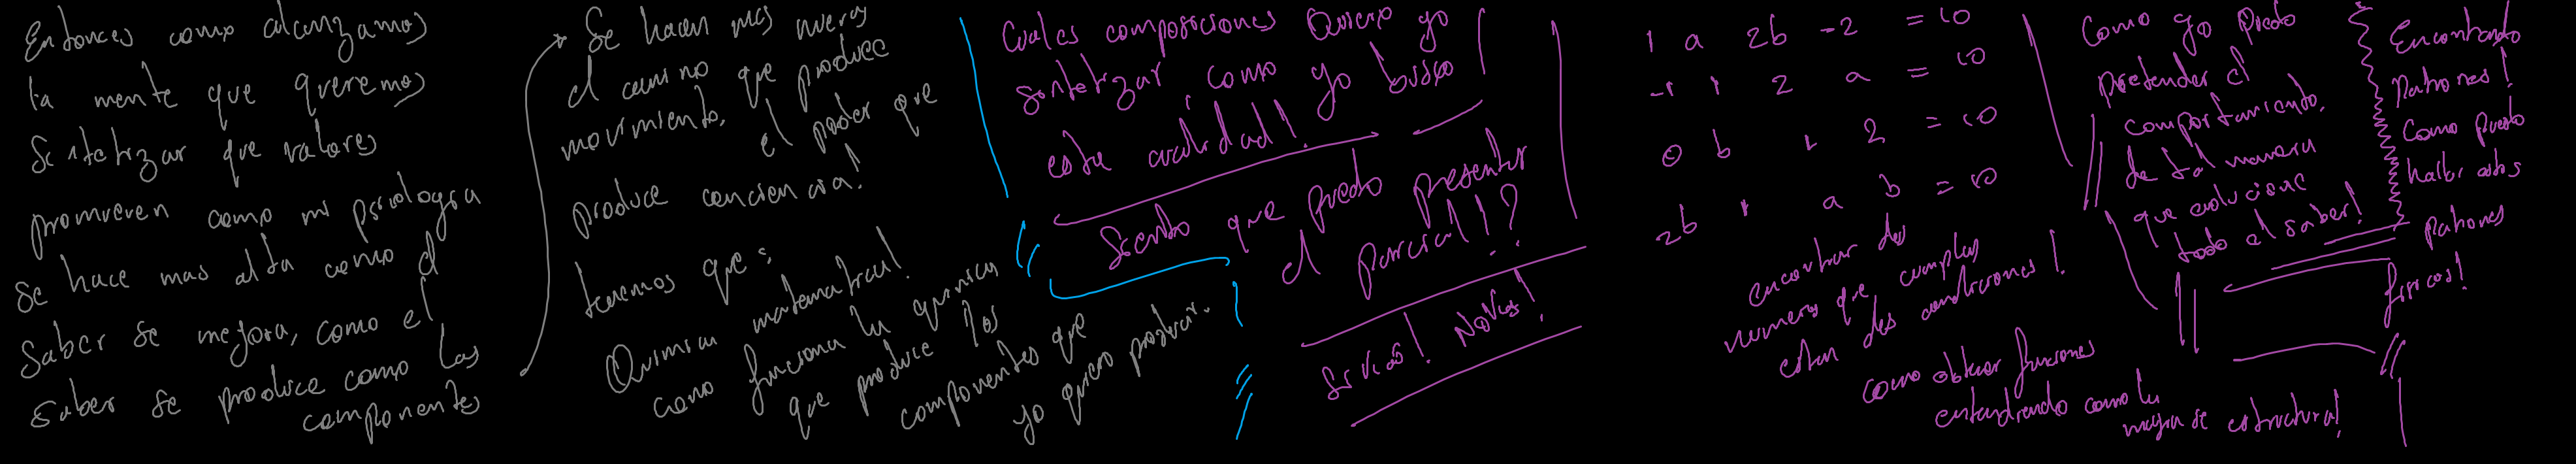 Entonces como alcanzamos
la mente que queremos
Sintetizar que valores
promueven como mi psicologia
se hace mas alta como el
Saber se mejora, como el
saber se produce como los
componentes
Se hacen mas nuevas
el camino que produce
movimiento, que
el poder que
produce conciencia!
tenemos que:
Quimica matematica!
como funciona la quimica
que produce los
componentes que
yo quiero producir.
Cuales composiciones Quiero yo
sintetizar, como yo busco
esta cualidad!
Siento que puedo presentar
el parcial!!?
Servicio! Novias!
1 a 2b -2 = 10
-1 1 2 a = 10
0 b 1 2 = 10
2b 1 a b = 10
encontrar dos
numeros que cumplan
estan dos condiciones!
como obtener funciones
entendiendo como la
mejora se estructura!
Como yo puedo
pretender el
comportamiento.
de tal manera
que evolucione
todo el saber!
Encontrando
patrones!
Como puedo
hallar estos
patrones
fisicos!